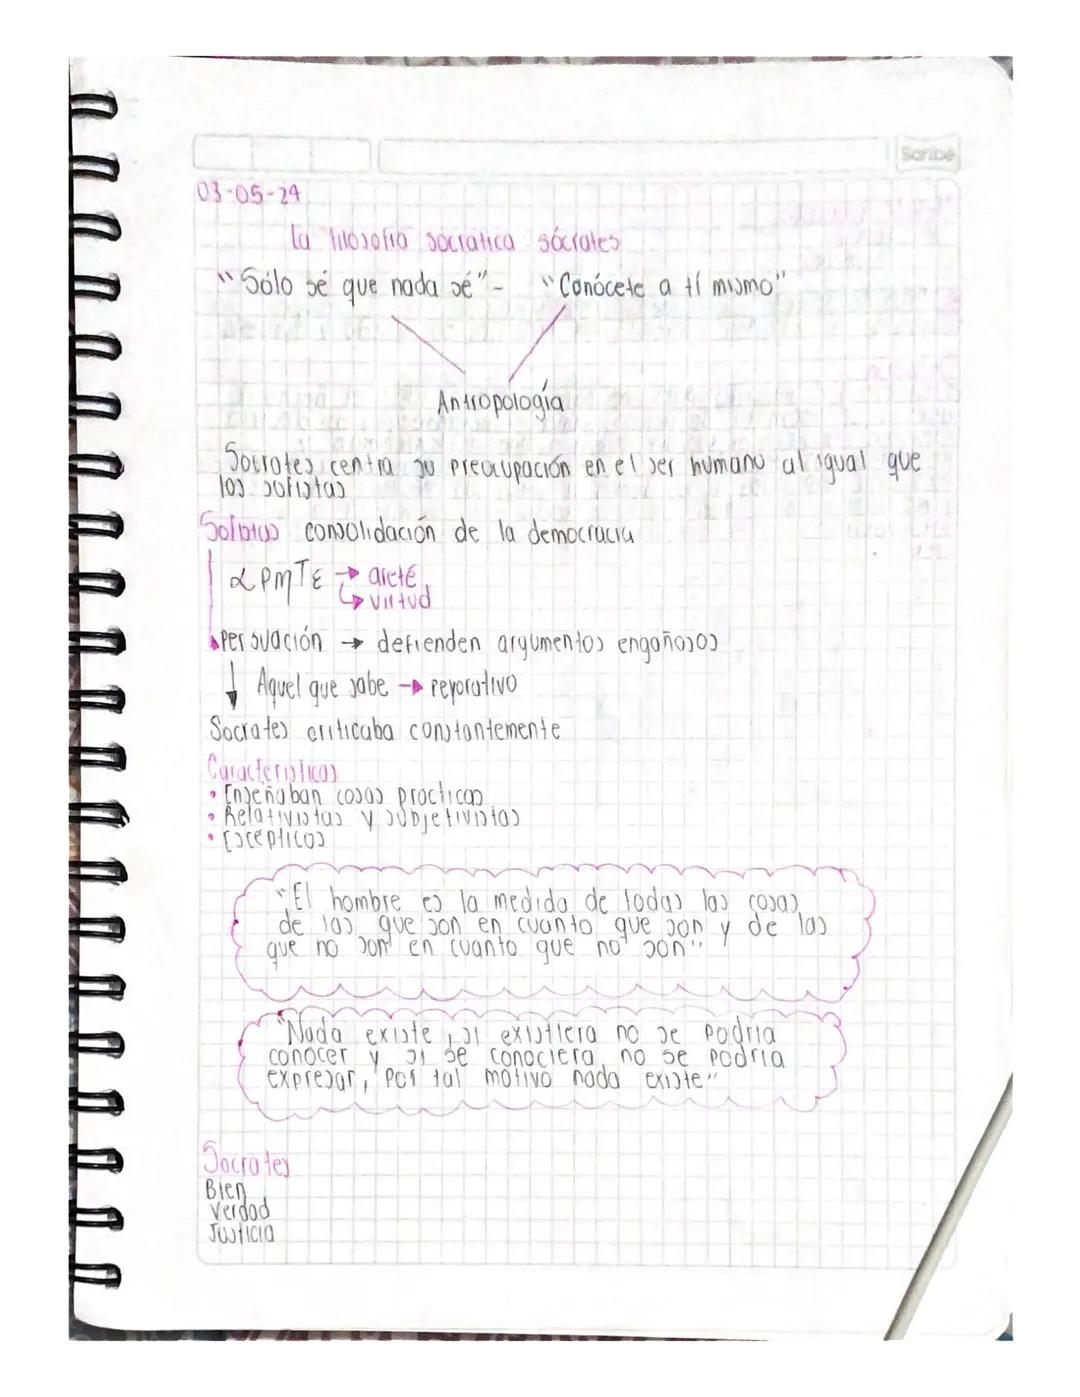 Scribe
03-05-24
La filosofía socrática sócrates
"Sólo sé que nada sé"- "Conócete a tí mismo"
Antropología
Socrates centra su preocupación en el ser humano al igual que
los sofistas
Sofistas consolidación de la democracia
αρητε → areté
↳ virtud
persuación → defienden argumentos engañosos
↓ Aquel que sabe → peyorativo
Socrates criticaba constantemente
Caracteristicas
• Enseñaban cosas practicas
• Relativistas y subjetivistas
• Escépticos
"El hombre es la medida de todas las cosas
de las que son en cuanto que son y de las
que no son en cuanto que no son"
"Nada existe, si existiera no se podria
conocer y si se conociera no se podria
expresar, por tal motivo nada existe"
Socrates
Bien
Verdad
Justicia